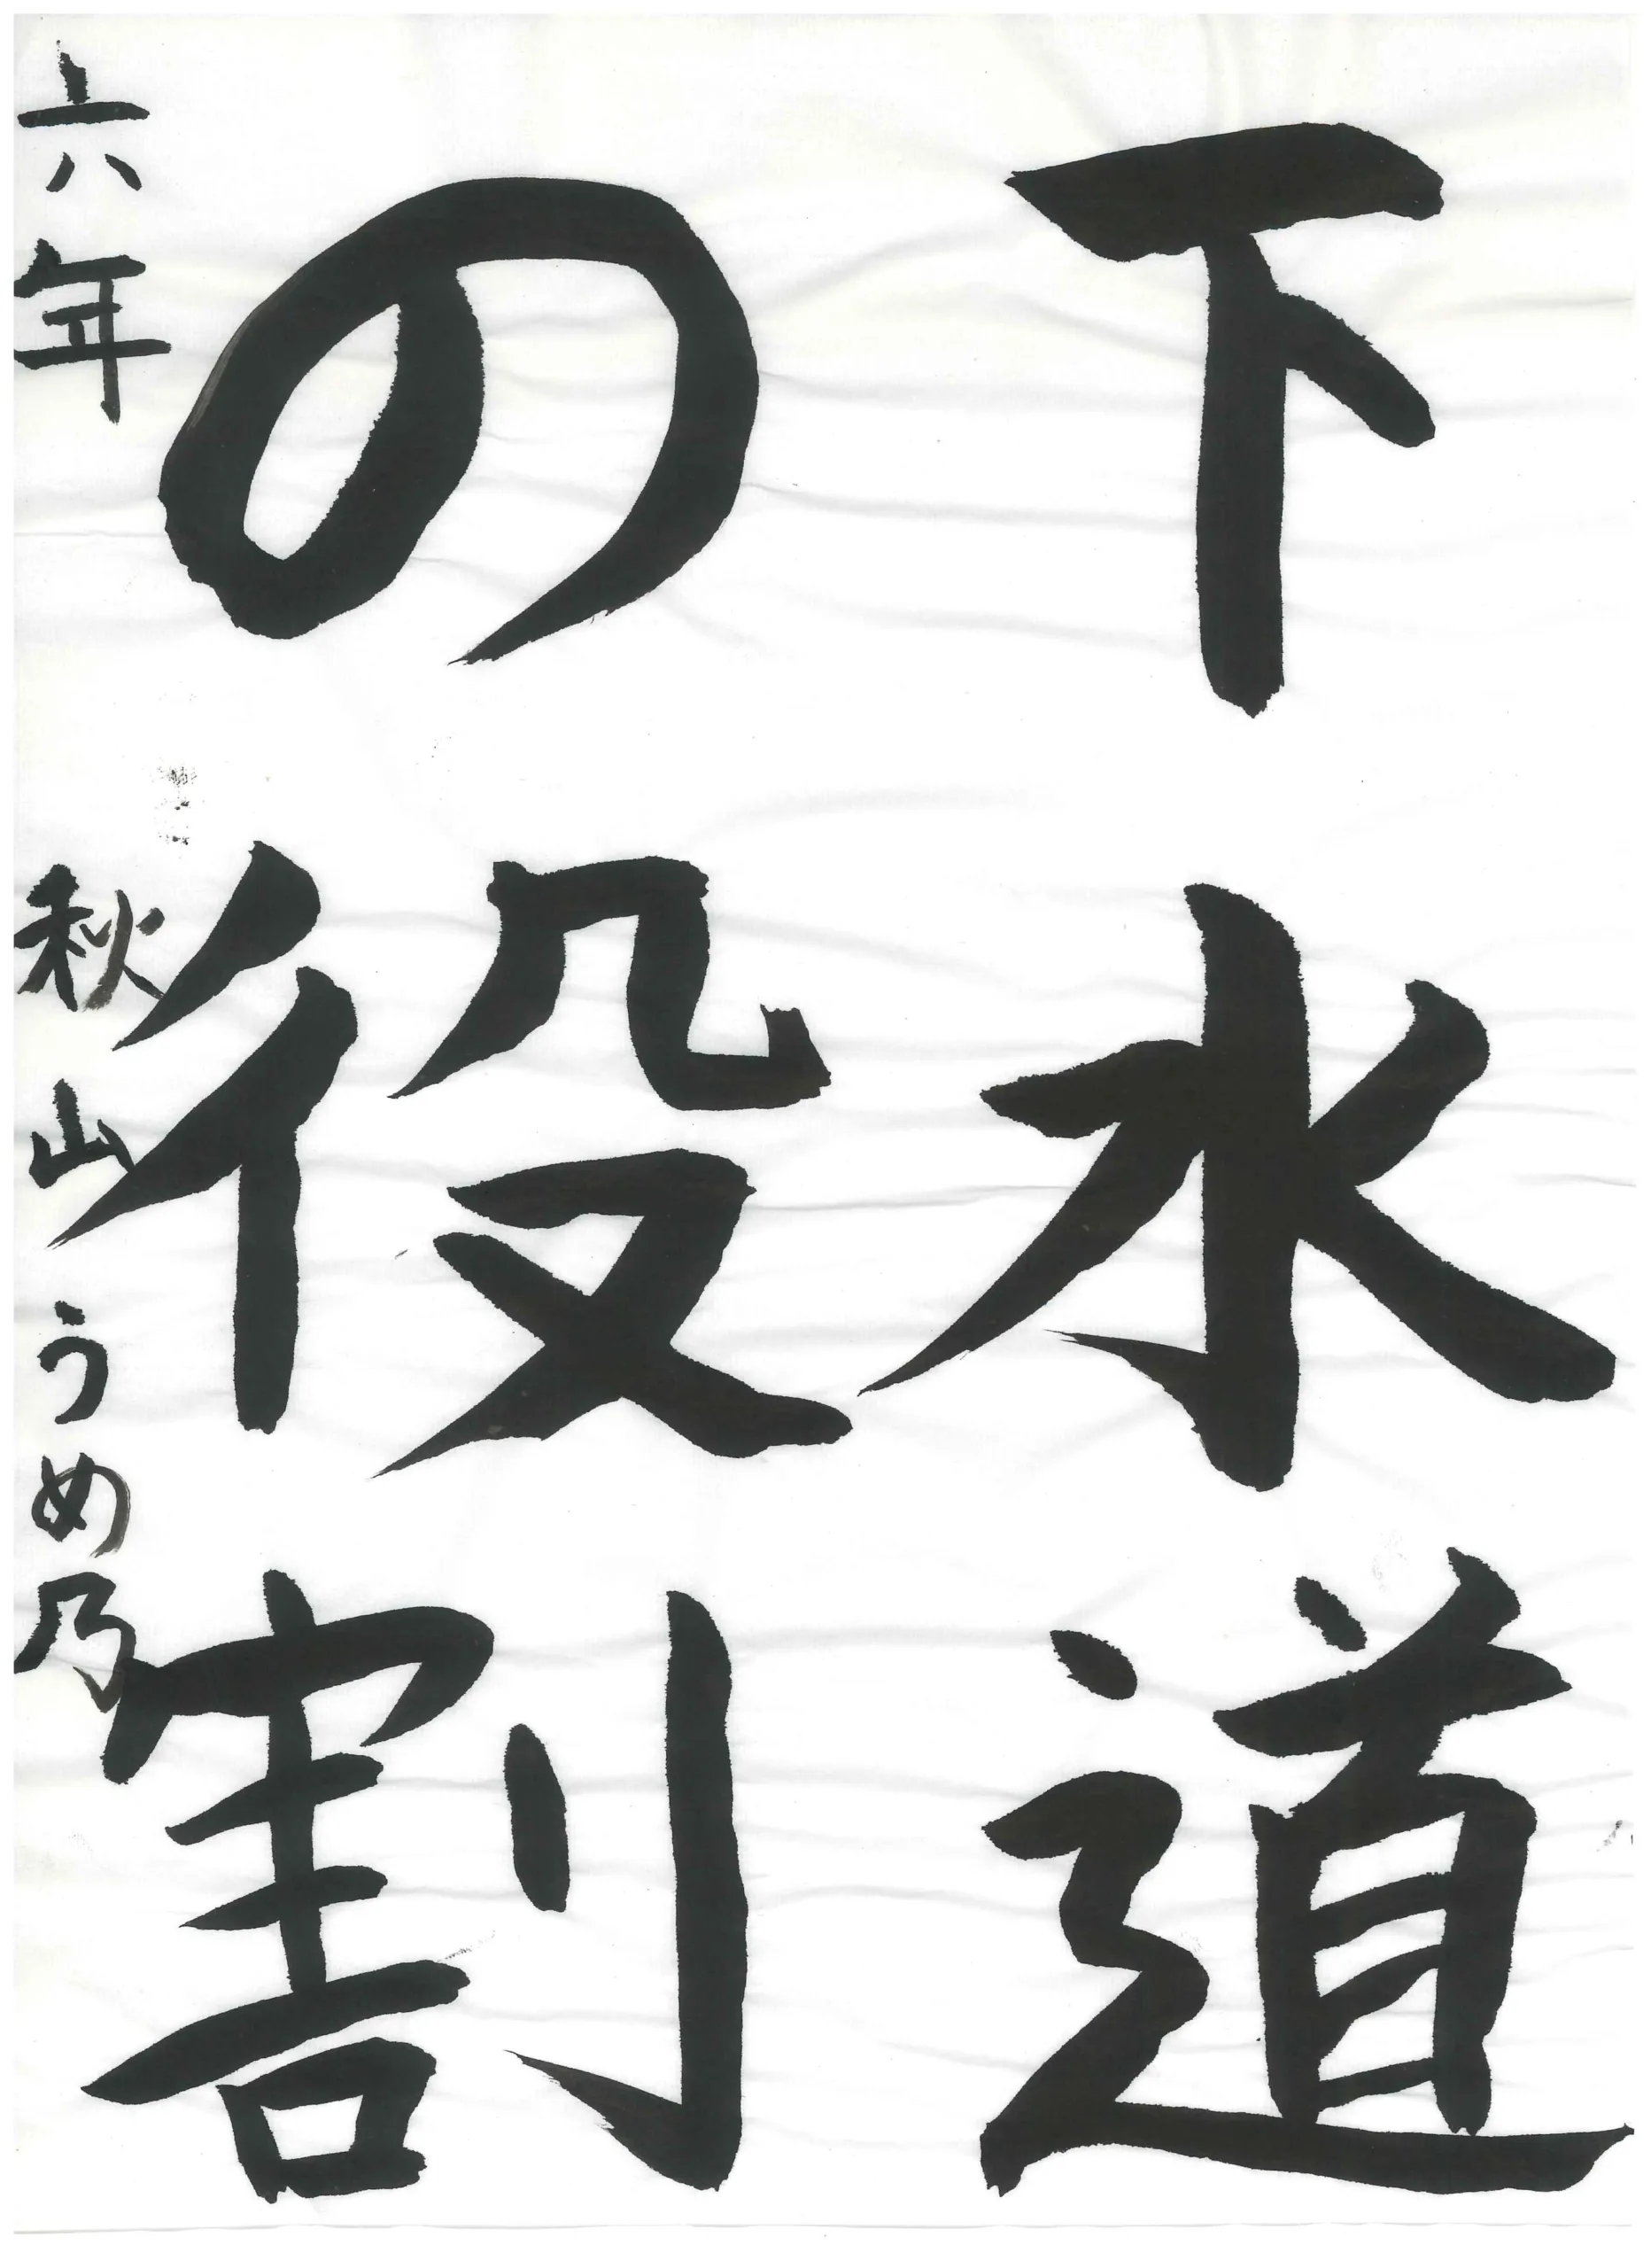 下水道
の役割
六年 秋山うめ乃